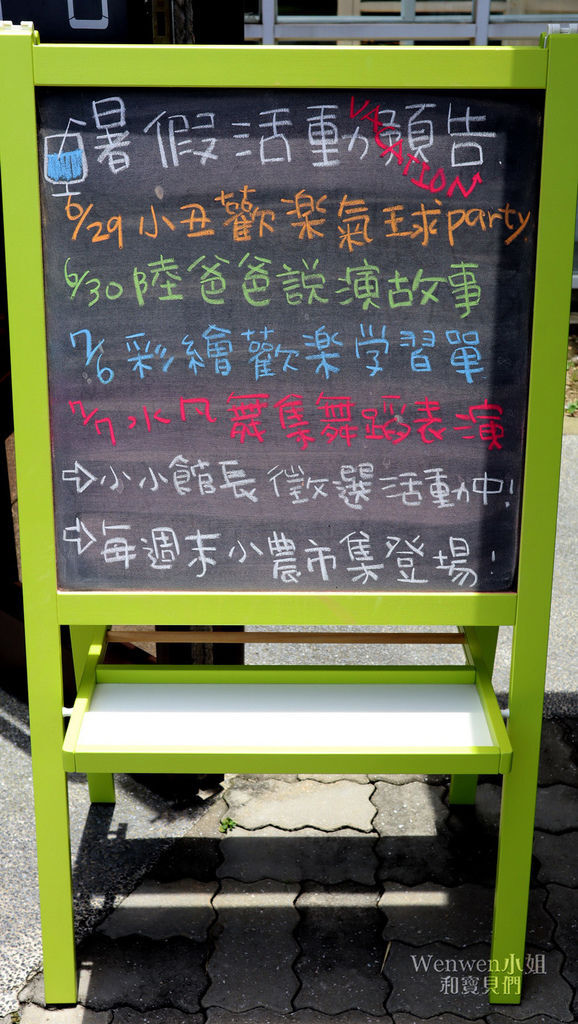 暑假活動預告
VACATION
6/29 小丑歡樂氣球party
6/30 陸爸爸說演故事
7/6 彩繪歡樂学習單
7/7 水凡舞集舞蹈表演
⇨小小館長徵選活動中!
⇨每週末小農市集登場!
Wenwen小姐
和寶貝們